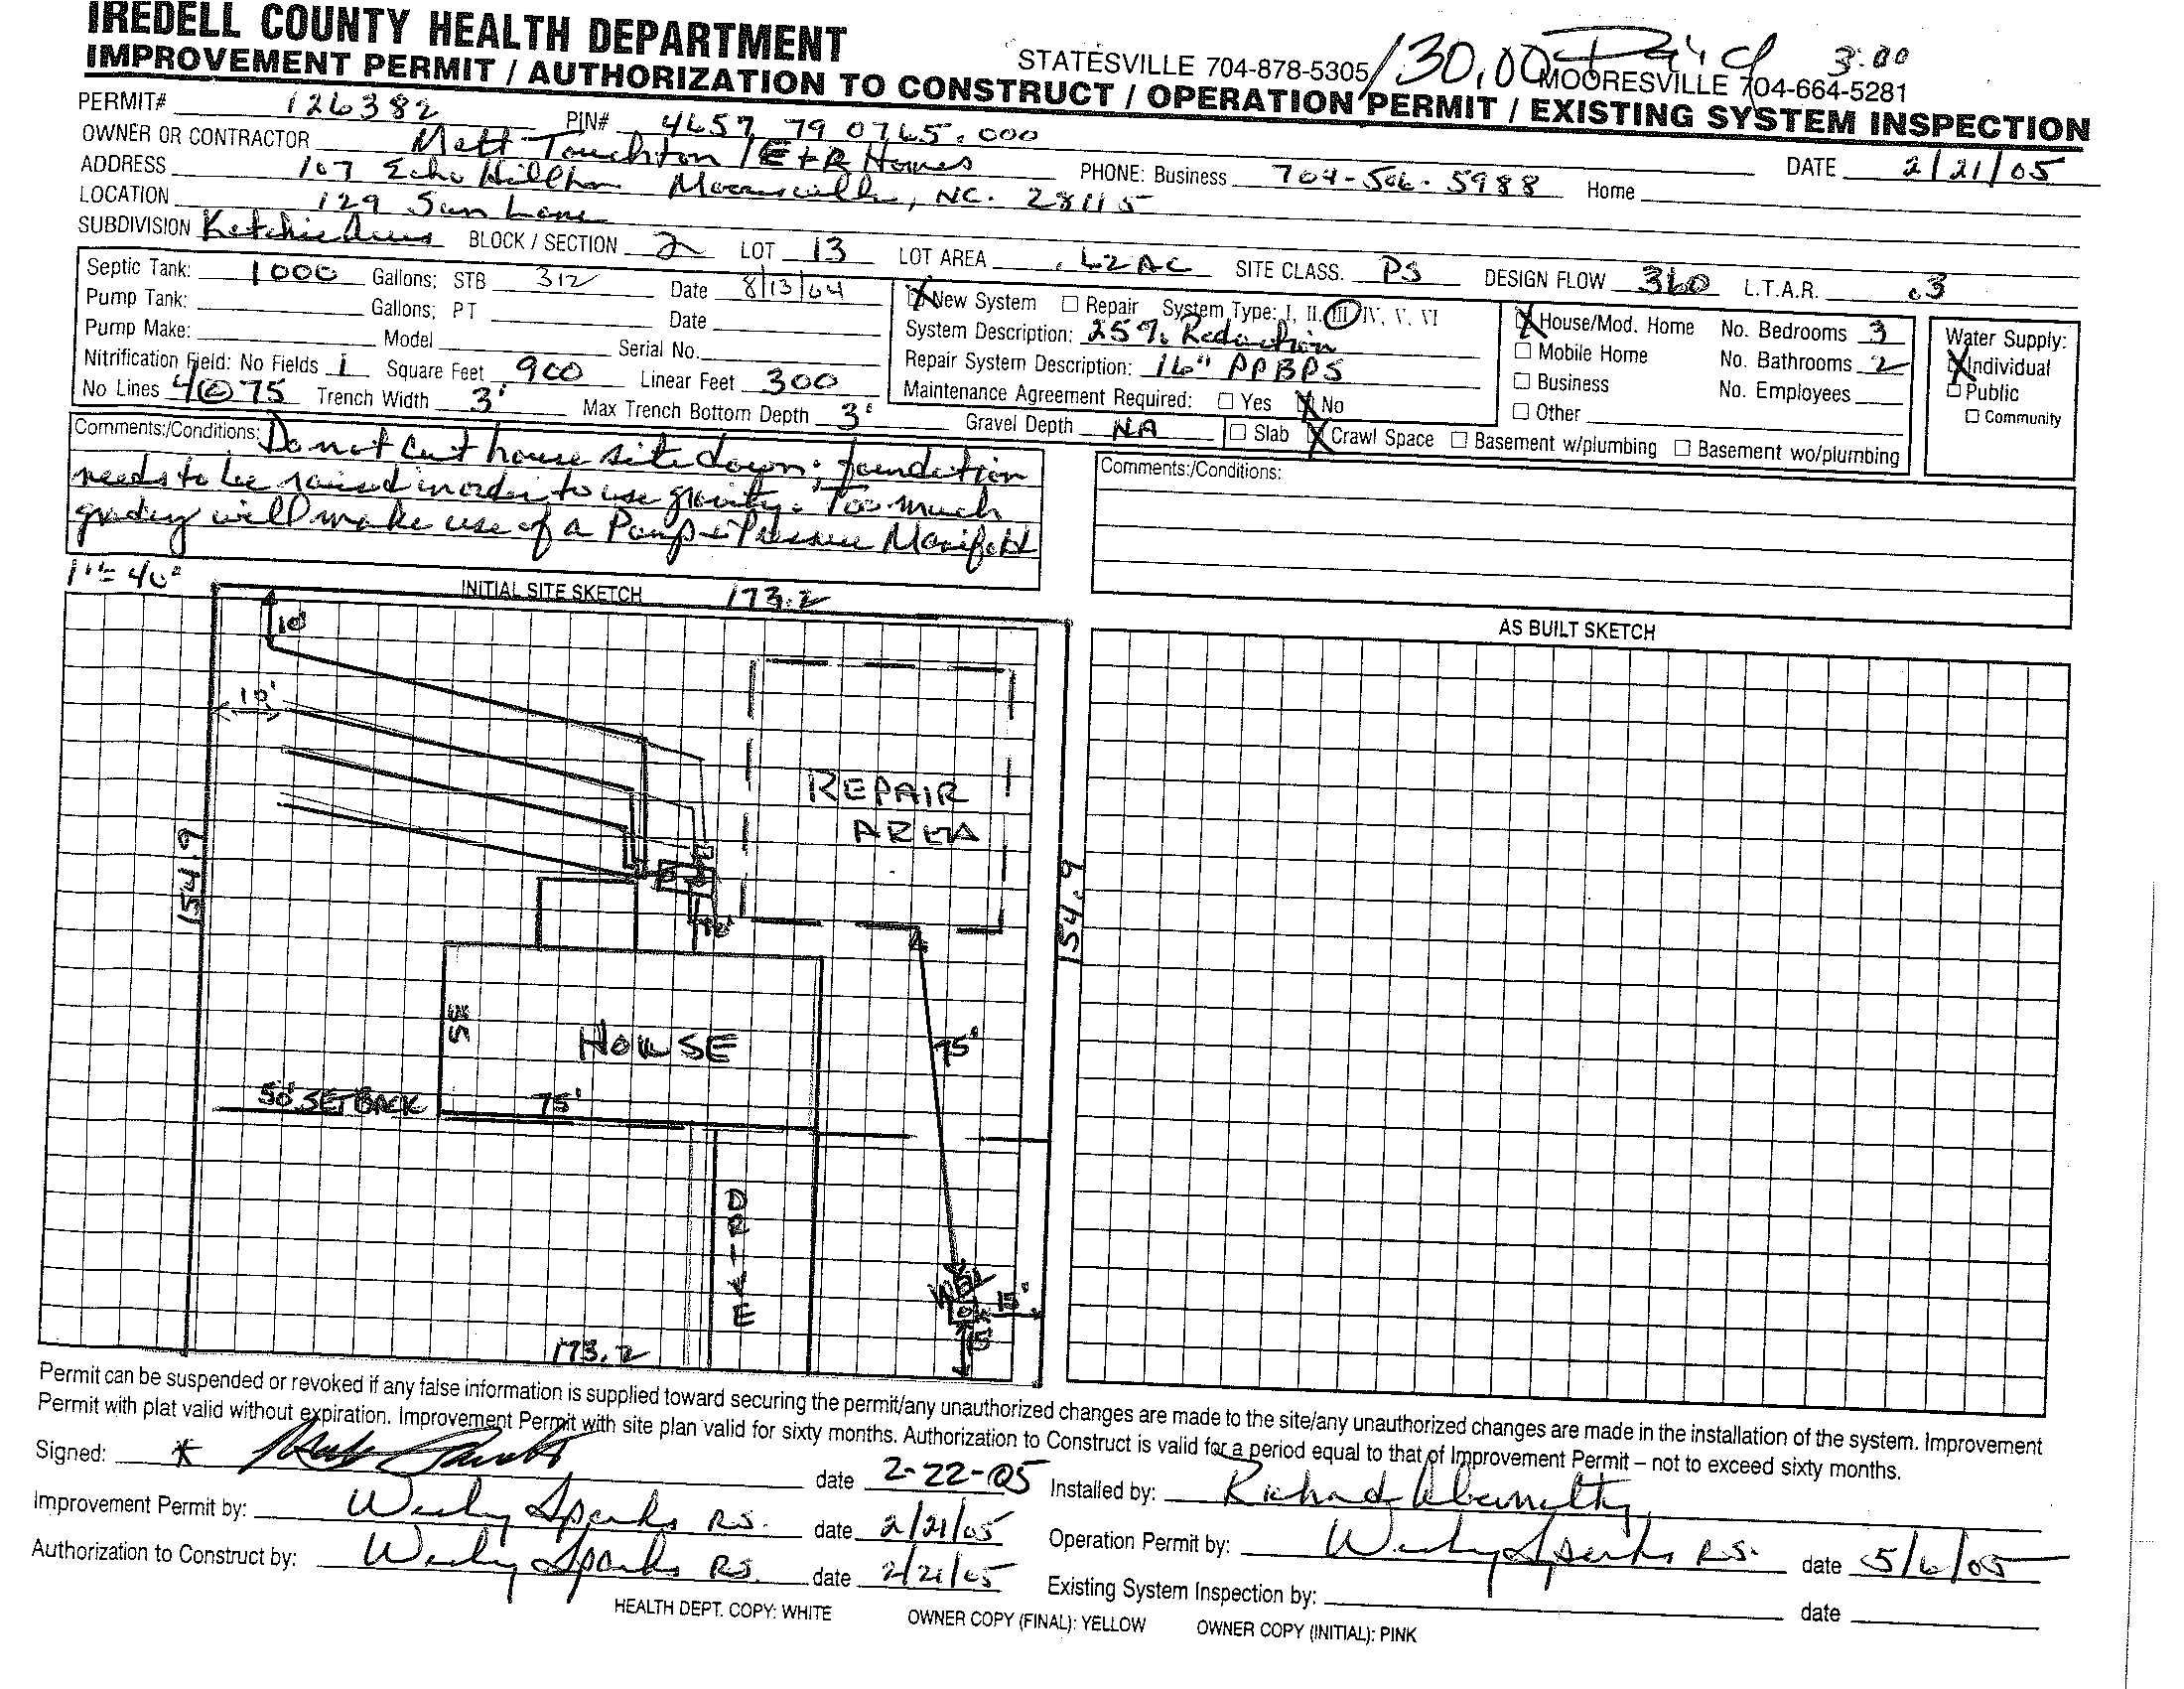 IREDELL COUNTY HEALTH DEPARTMENT
STATESVILLE 704-878-5305 130.00 Paid 3:00 MOORESVILLE 704-664-5281
IMPROVEMENT PERMIT / AUTHORIZATION TO CONSTRUCT / OPERATION PERMIT / EXISTING SYSTEM INSPECTION
PERMIT# 126382 PIN# 4657 79 0765.000
DATE 2/21/05
OWNER OR CONTRACTOR Matt Touchton / E+R Homes PHONE: Business 704-506-5988 Home
ADDRESS 107 Echo Hill Mooresville, NC. 28115
LOCATION 129 Sam Lane
SUBDIVISION Ketchie BLOCK / SECTION 2 LOT 13 LOT AREA .62 AC SITE CLASS. PS DESIGN FLOW 360 L.T.A.R. .3
Septic Tank: 1000 Gallons; STB 312 Date 8/13/04
Pump Tank: Gallons; PT Date
Pump Make: Model Serial No.
Nitrification Field: No Fields 1 Square Feet 900 Linear Feet 300
No Lines 4@75 Trench Width 3' Max Trench Bottom Depth 3' Gravel Depth NA
X New System Repair System Type: I, II, III, IV, V, VI
System Description: 25% Reduction
Repair System Description: 16" PPBPS
Maintenance Agreement Required: Yes X No
X House/Mod. Home No. Bedrooms 3
Mobile Home No. Bathrooms 2
Business No. Employees
Other
Slab X Crawl Space Basement w/plumbing Basement wo/plumbing
Water Supply:
X Individual
Public
Community
Comments:/Conditions: Do not cut house site down; foundation
needs to be raised in order to use gravity. Too much
grading will make use of a Pump + Pressure Manifold
Comments:/Conditions:
1"=40'
INITIAL SITE SKETCH 173.2
AS BUILT SKETCH
10'
10'
REPAIR
AREA
154.9
154.9
HOUSE
75'
50' SETBACK
75'
DRIVE
WELL
15'
15'
173.2
Permit can be suspended or revoked if any false information is supplied toward securing the permit/any unauthorized changes are made to the site/any unauthorized changes are made in the installation of the system. Improvement
Permit with plat valid without expiration. Improvement Permit with site plan valid for sixty months. Authorization to Construct is valid for a period equal to that of Improvement Permit – not to exceed sixty months.
Signed: * date 2-22-05 Installed by: Richard Abernathy
Improvement Permit by: Wesley Sparks R.S. date 2/21/05 Operation Permit by: Wesley Sparks R.S. date 5/6/05
Authorization to Construct by: Wesley Sparks RS. date 2/21/05 Existing System Inspection by: date
HEALTH DEPT. COPY: WHITE OWNER COPY (FINAL): YELLOW OWNER COPY (INITIAL): PINK